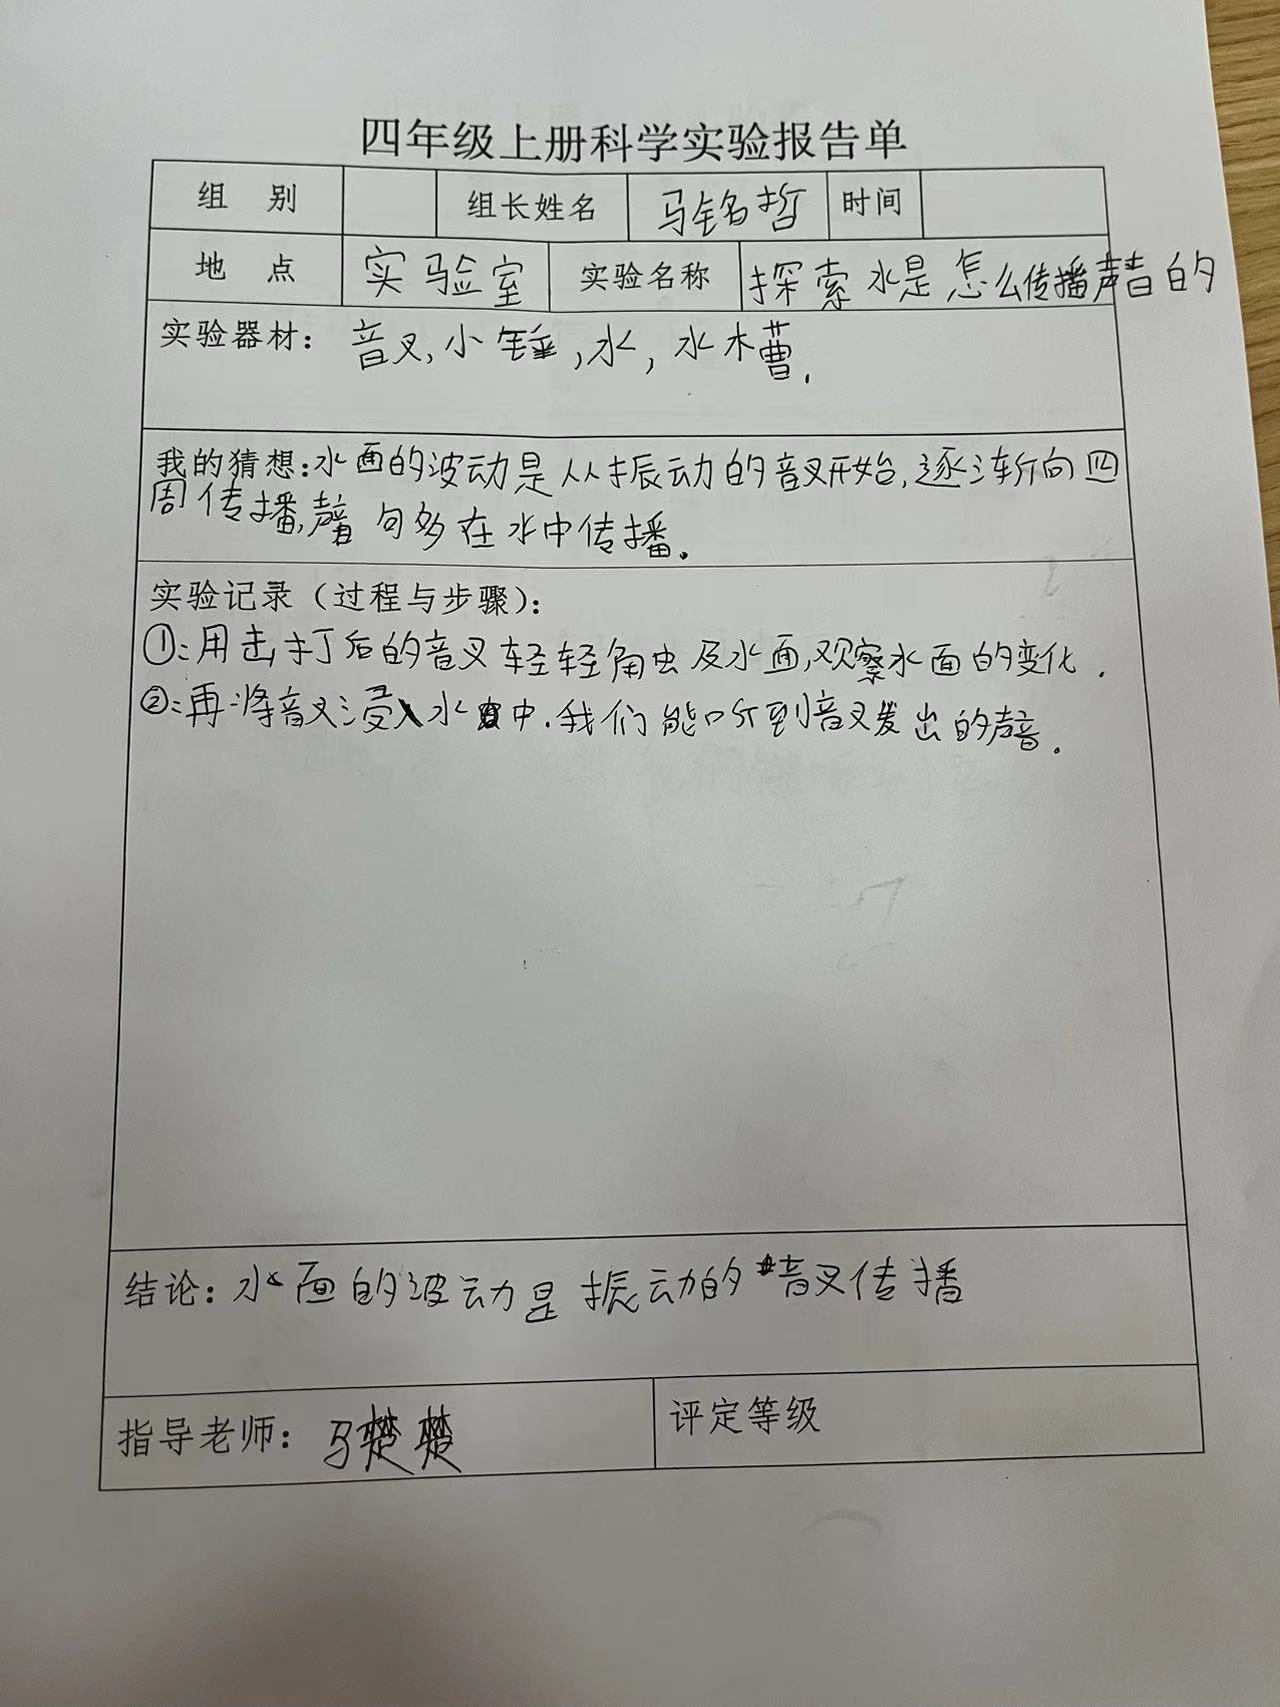 四年级上册科学实验报告单
组 别 组长姓名 马铭哲 时间
地 点 实验室 实验名称 探索水是怎么传播声音的
实验器材： 音叉,小锤,水,水槽.
我的猜想:水面的波动是从振动的音叉开始,逐渐向四
周传播,声音 句多在水中传播.
实验记录（过程与步骤）：
①:用击打后的音叉轻轻触及水面,观察水面的变化.
②:再将音叉浸入水中.我们能听到音叉发出的声音.
结论：水面的波动是振动的音叉传播
指导老师： 马楚楚 评定等级